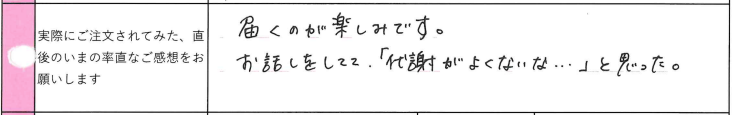 実際にご注文されてみた、直
後のいまの率直なご感想をお
願いします
届くのが楽しみです。
お話しをしてて、「代謝がよくないな…」と思った。